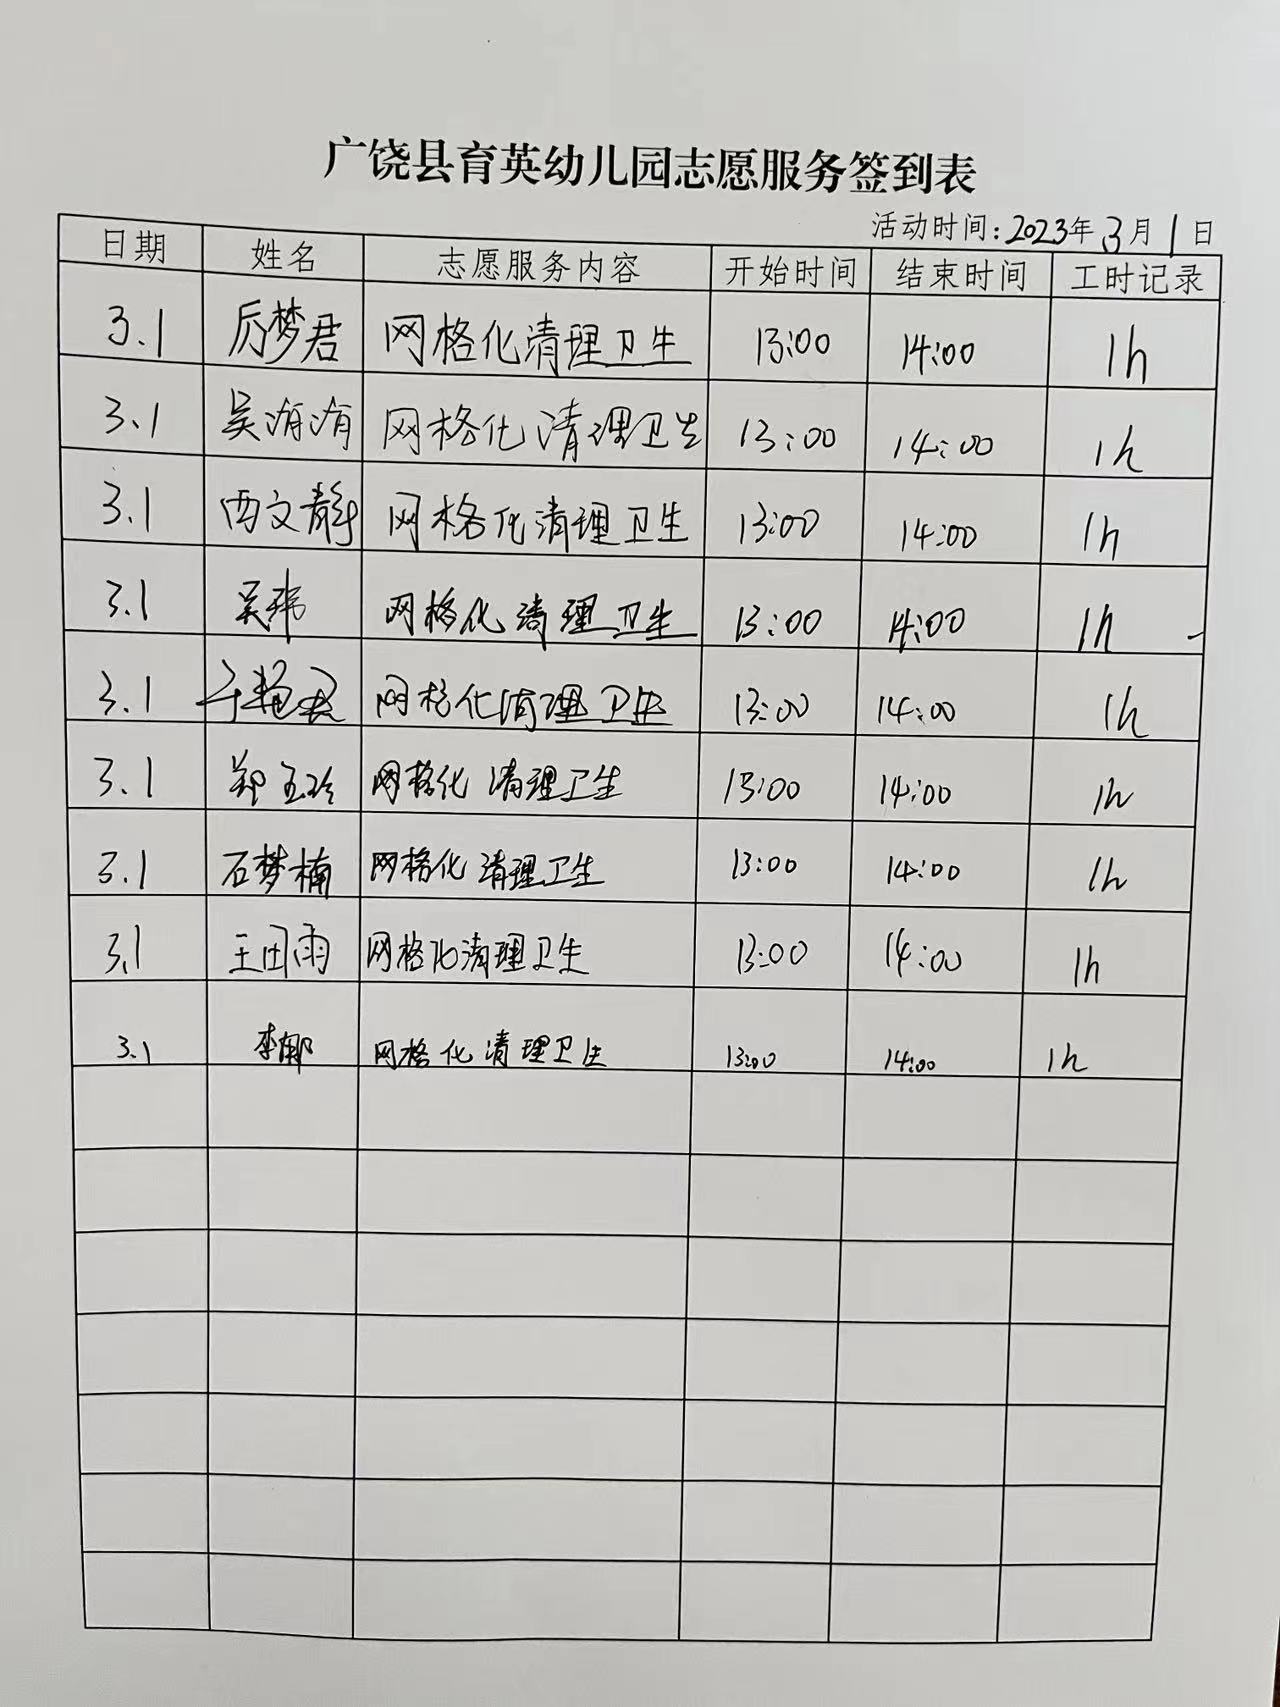 广饶县育英幼儿园志愿服务签到表
活动时间：2023年3月1日
日期 姓名 志愿服务内容 开始时间 结束时间 工时记录
3.1 厉梦君 网格化清理卫生 13:00 14:00 1h
3.1 吴洧洧 网格化清理卫生 13:00 14:00 1h
3.1 西文静 网格化清理卫生 13:00 14:00 1h
3.1 吴玮 网格化清理卫生 13:00 14:00 1h
3.1 网格化清理卫生 13:00 14:00 1h
3.1 郑玉玲 网格化清理卫生 13:00 14:00 1h
3.1 石梦楠 网格化清理卫生 13:00 14:00 1h
3.1 王田雨 网格化清理卫生 13:00 14:00 1h
3.1 李郁 网格化清理卫生 13:00 14:00 1h